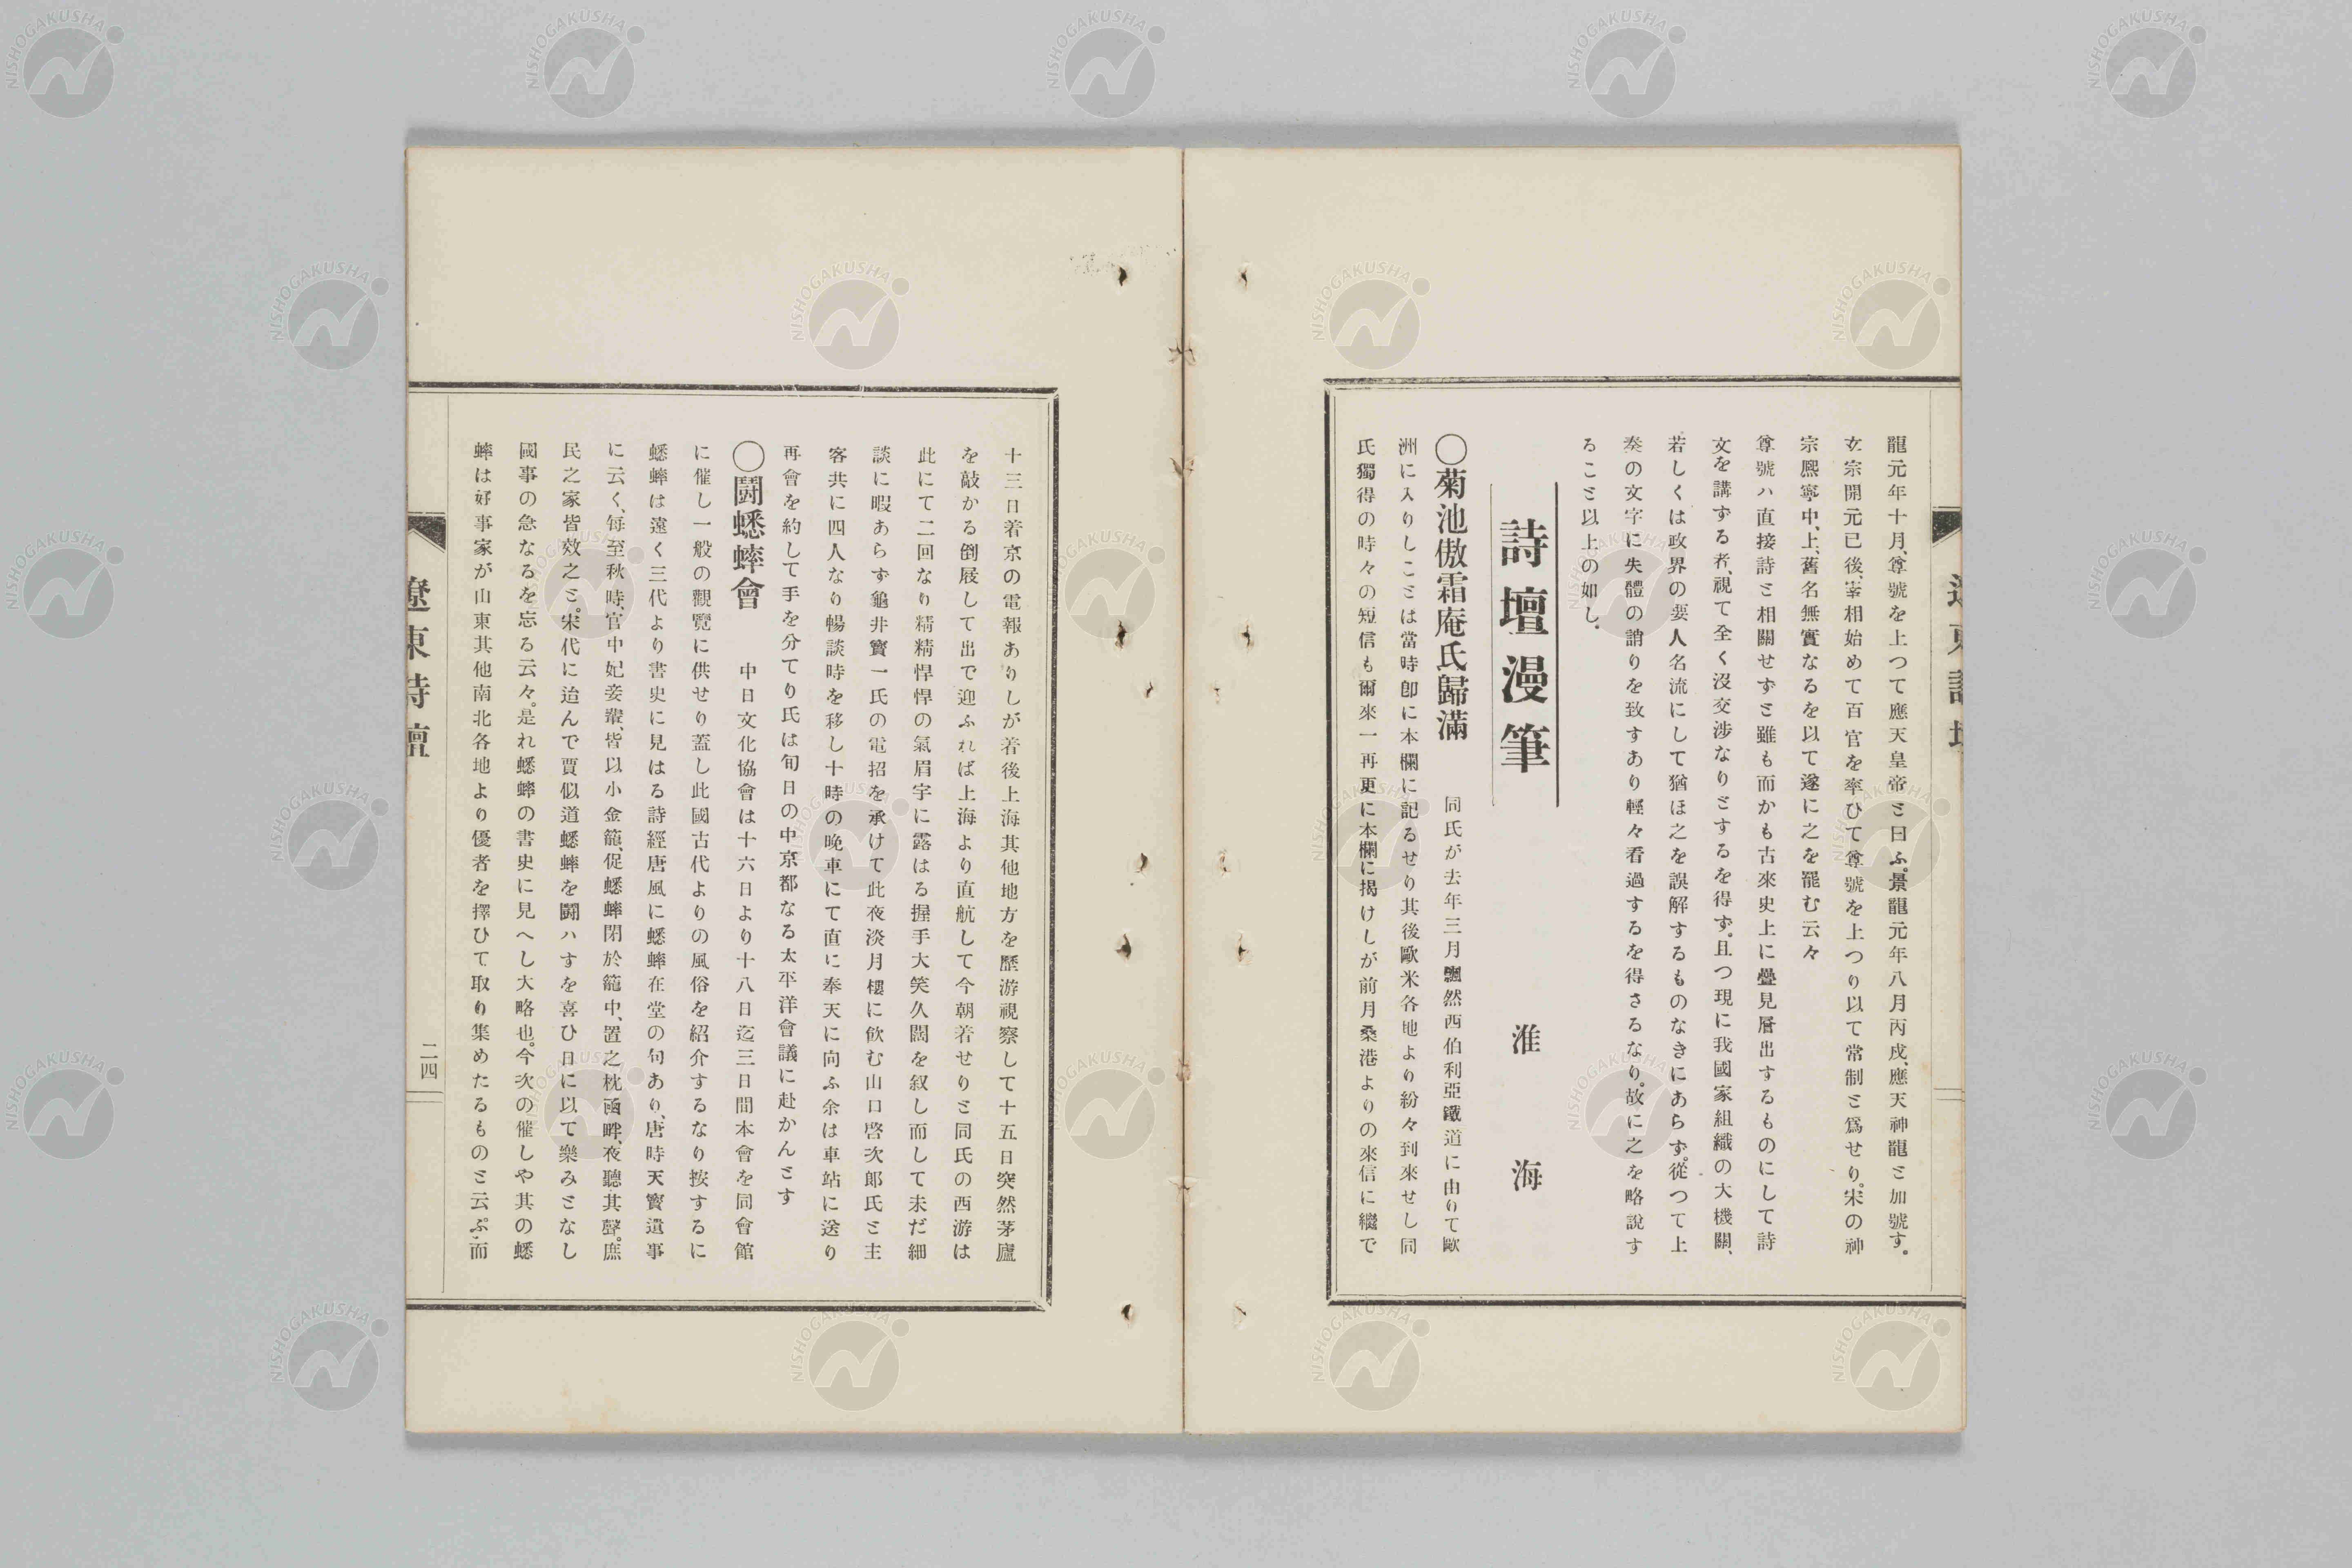 龍元年十月、尊號を上つて應天皇帝ミ曰ふ。景龍元年八月丙戍、應天神龍ミ加號す。
玄宗開元已後、宰相始めて百官を率ひて尊號を上つり以て常制ミ爲せり。宋の神
宗熙寧中、上、舊名無實なるを以て遂に之を罷む云々
尊號ハ直接詩ミ相關せずミ雖も而かも古來史上に疊見層出するものにして詩
文を講ずる者、視て全く沒交涉なりミするを得ず。且つ現に我國家組織の大機關、
若しくは政界の要人名流にして猶ほ之を誤解するものなきにあらず。從つて上
奏の文字に失體の誚りを致すあり輕々看過するを得さるなり。故に之を略說す
るこミ以上の如し。
詩壇漫筆
淮海
〇菊池傲霜庵氏歸滿 同氏が去年三月飄然西伯利亞鐵道に由りて歐
洲に入りしこミは當時卽に本欄に記るせり其後歐米各地より紛々到來せし同
氏獨得の時々の短信も爾來一再更に本欄に揭けしが前月桑港よりの來信に繼で
十三日着京の電報ありしが着後上海其他地方を歷游視察して十五日突然茅廬
を敲かる倒屐して出で迎ふれば上海より直航して今朝着せりミ同氏の西游は
此にて二回なり精精悍悍の氣眉宇に露はる握手大笑久闊を叙し而して未だ細
談に暇あらず龜井寶一氏の電招を承けて此夜淡月樓に飮む山口啓次郞氏ミ主
客共に四人なり暢談時を移し十時の晚車にて直に奉天に向ふ余は車站に送り
再會を約して手を分てり氏は旬日の中京都なる太平洋會議に赴かんミす
〇鬪蟋蟀會 中日文化協會は十六日より十八日迄三日間本會を同會館
に催し一般の觀覽に供せり蓋し此國古代よりの風俗を紹介するなり按するに
蟋蟀は遠く三代より書史に見はる詩經唐風に蟋蟀在堂の句あり、唐時天寶遺事
に云く、每至秋時、宮中妃妾輩、皆以小金籠、促蟋蟀閉於籠中、置之枕函畔、夜聽其聲。庶
民之家皆效之ミ。宋代に迨んで賈似道蟋蟀を鬪ハすを喜ひ日に以て樂みミなし
國事の急なるを忘る云々。是れ蟋蟀の書史に見へし大略也。今次の催しや其の蟋
蟀は好事家が山東其他南北各地より優者を擇ひて取り集めたるものミ云ふ。而
遼東詩壇
二四